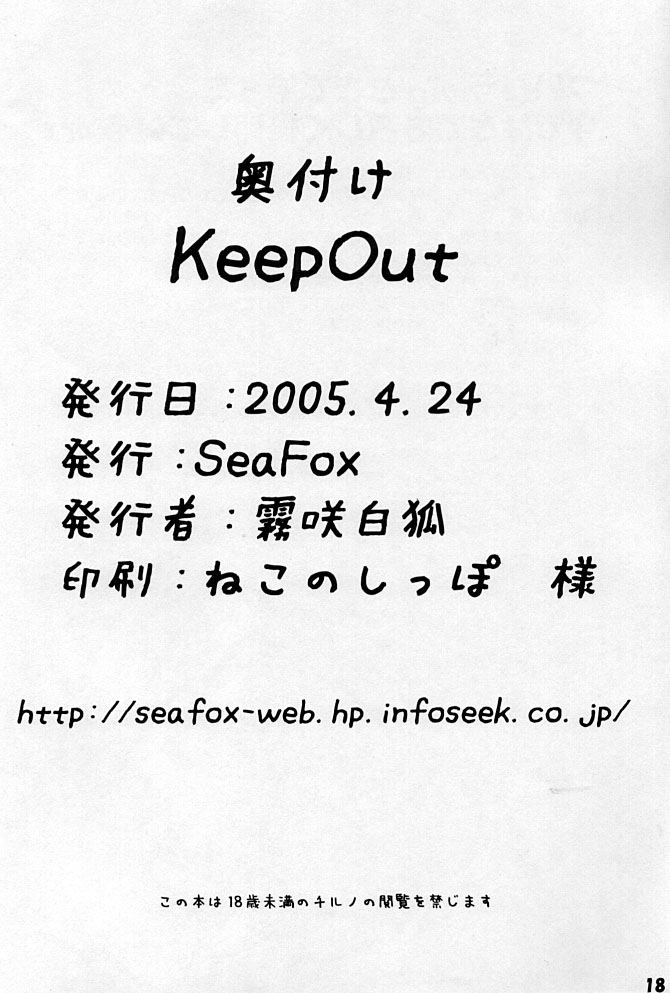 奥付け
KeepOut
発行日:2005.4.24
発行:SeaFox
発行者:霧咲白狐
印刷:ねこのしっぽ 様
http://seafox-web.hp.infoseek.co.jp/
この本は18歳未満のチルノの閲覧を禁じます
18